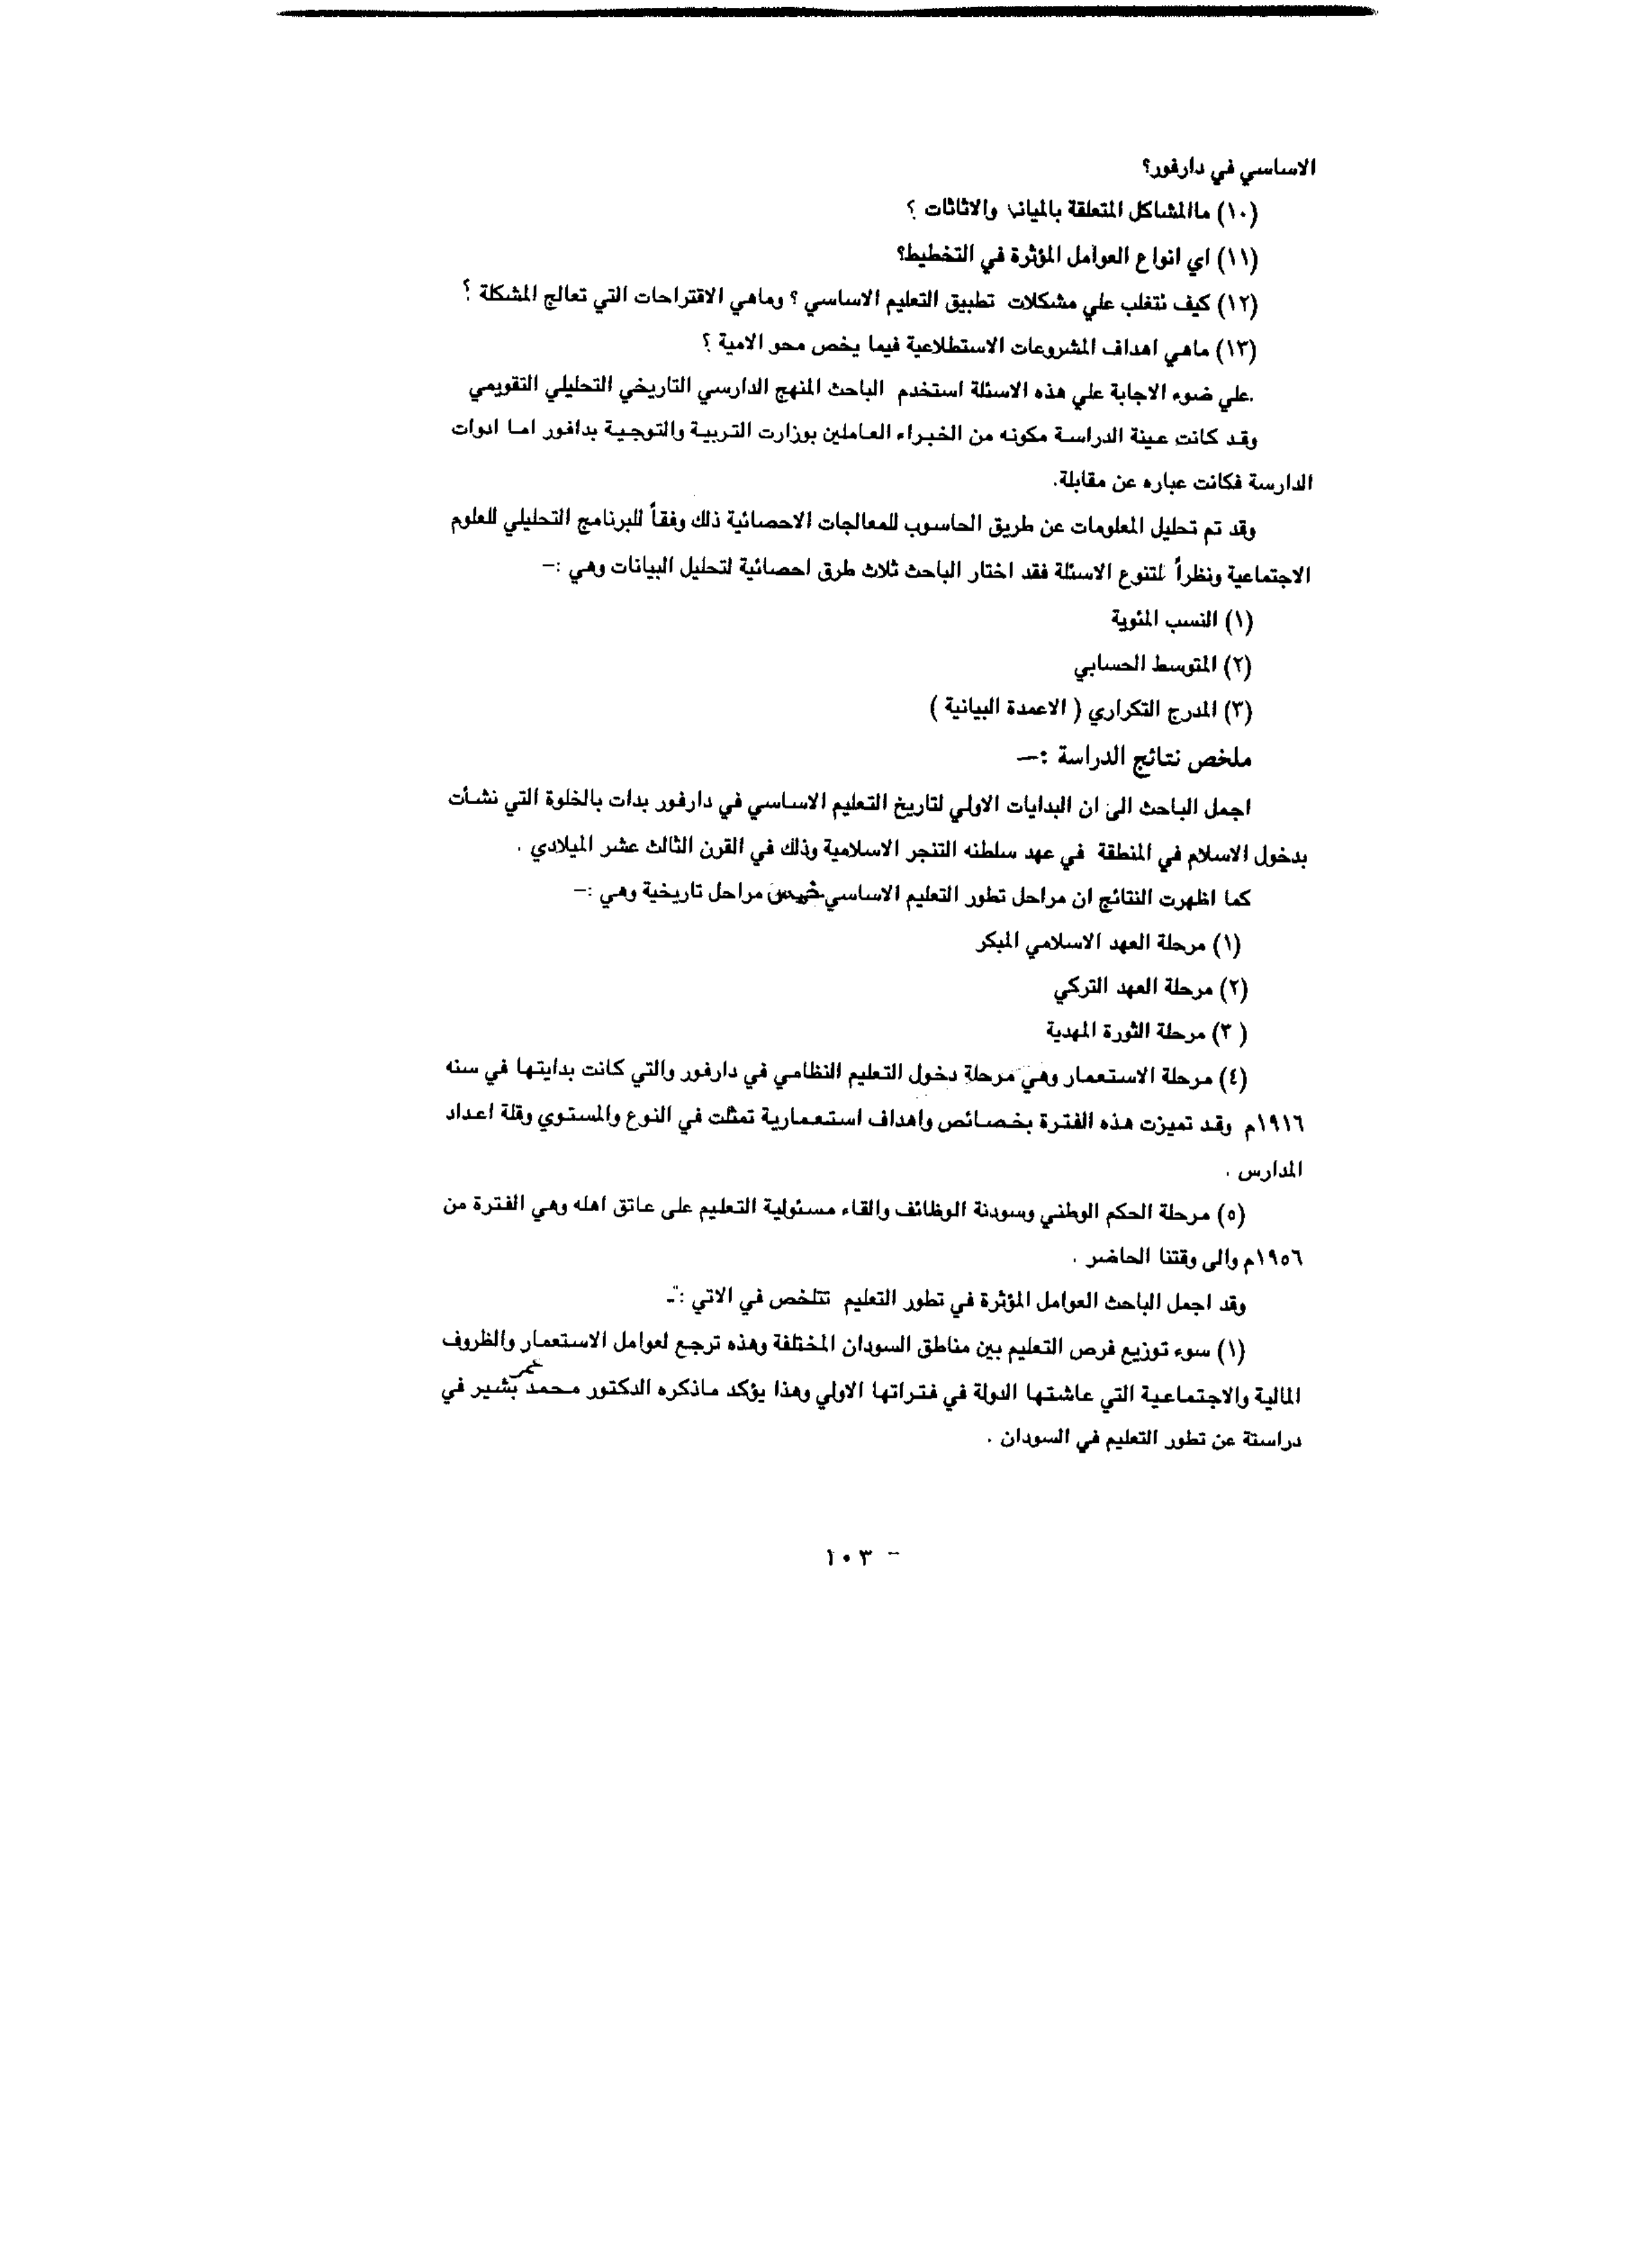 الاساسي في دارفور؟
(١٠) ماالمشاكل المتعلقة بالمياني والاثاثات ؟
(١١) اي انواع العوامل المؤثرة في التخطيط؟
(١٢) كيف نتغلب علي مشكلات تطبيق التعليم الاساسي ؟ وماهي الاقتراحات التي تعالج المشكلة ؟
(١٣) ماهي اهداف المشروعات الاستطلاعية فيما يخص محو الامية ؟
.علي ضوء الاجابة علي هذه الاسئلة استخدم الباحث المنهج الدارسي التاريخي التحليلي التقويمي
وقد كانت عينة الدراسة مكونه من الخبراء العاملين بوزارت التربية والتوجية بدافور اما ادوات
الدارسة فكانت عباره عن مقابلة.
وقد تم تحليل المعلومات عن طريق الحاسوب للمعالجات الاحصائية ذلك وفقاً للبرنامج التحليلي للعلوم
الاجتماعية ونظراً لتنوع الاسئلة فقد اختار الباحث ثلاث طرق احصائية لتحليل البيانات وهي :–
(١) النسب المئوية
(٢) المتوسط الحسابي
(٣) المدرج التكراري ( الاعمدة البيانية )
ملخص نتائج الدراسة :–
اجمل الباحث الى ان البدايات الاولي لتاريخ التعليم الاساسي في دارفور بدات بالخلوة التي نشأت
بدخول الاسلام في المنطقة في عهد سلطنه التنجر الاسلامية وذلك في القرن الثالث عشر الميلادي .
كما اظهرت النتائج ان مراحل تطور التعليم الاساسي خمس مراحل تاريخية وهي :–
(١) مرحلة العهد الاسلامي المبكر
(٢) مرحلة العهد التركي
( ٣) مرحلة الثورة المهدية
(٤) مرحلة الاستعمار وهي مرحلة دخول التعليم النظامي في دارفور والتي كانت بدايتها في سنه
١٩١٦م وقد تميزت هذه الفترة بخصائص واهداف استعمارية تمثلت في النوع والمستوي وقلة اعداد
المدارس .
(٥) مرحلة الحكم الوطني وسودنة الوظائف والقاء مسئولية التعليم على عاتق اهله وهي الفترة من
١٩٥٦م والى وقتنا الحاضر .
وقد اجمل الباحث العوامل المؤثرة في تطور التعليم تتلخص في الاتي :-
(١) سوء توزيع فرص التعليم بين مناطق السودان المختلفة وهذه ترجع لعوامل الاستعمار والظروف
المالية والاجتماعية التي عاشتها الدولة في فتراتها الاولي وهذا يؤكد ماذكره الدكتور محمد عمر بشير في
دراستة عن تطور التعليم في السودان .
- ١٠٣